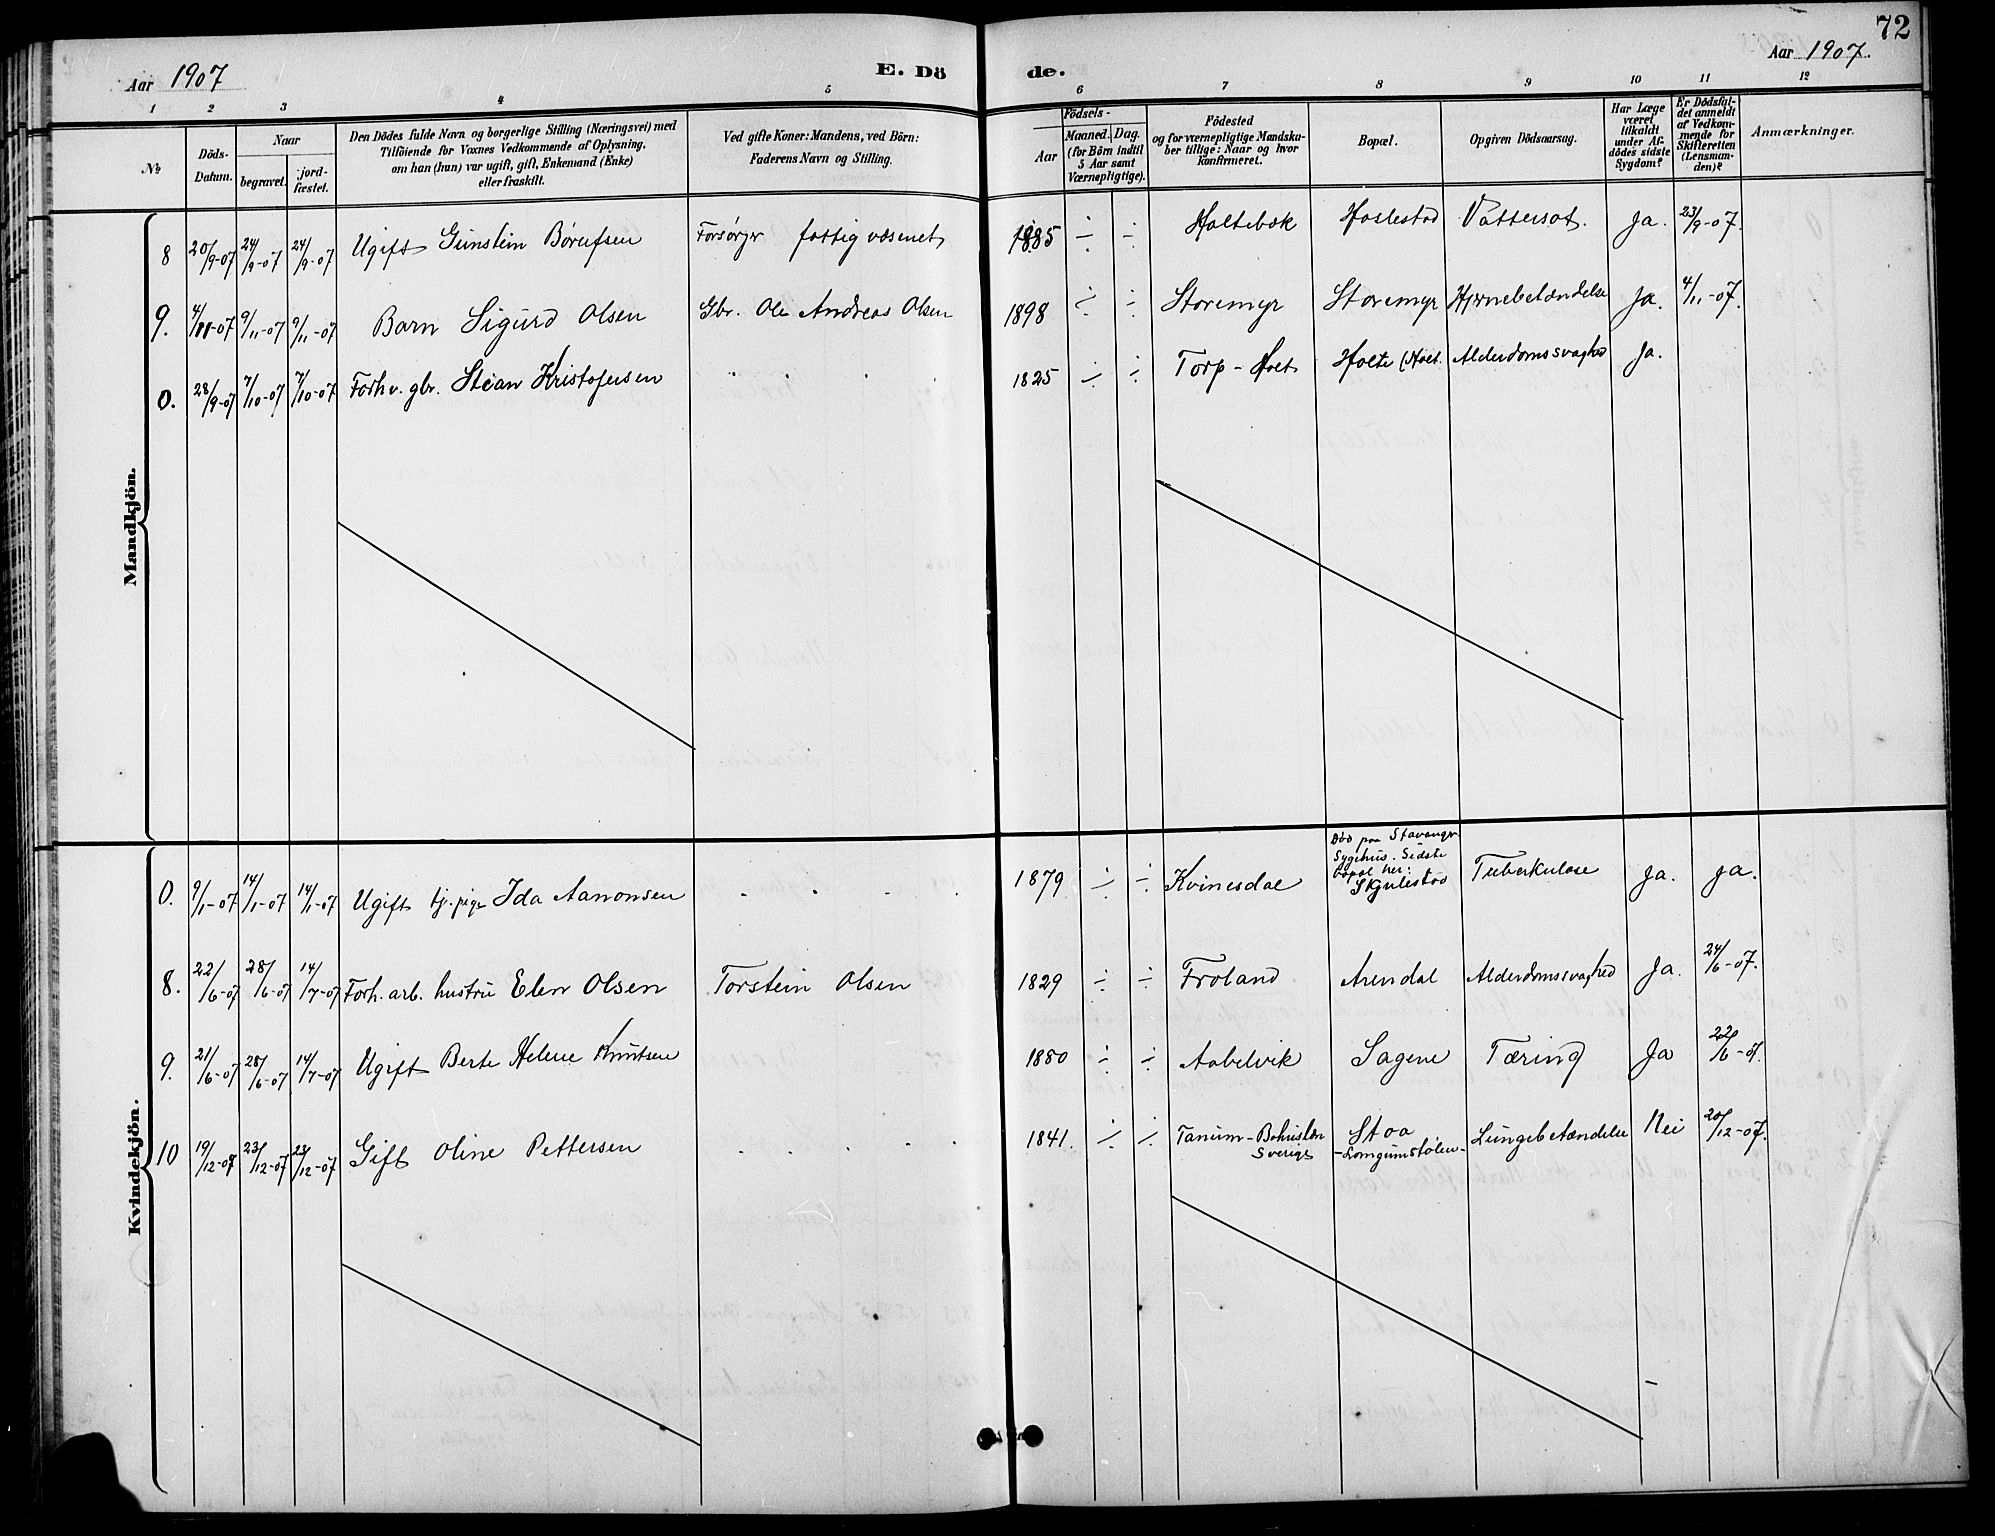 72
Aar 1907
E. Dö
de.
Aar 1907.
1 2 3 4 5 6 7 8 9 10 11 12
№
Döds-
Datum.
Naar
begravet.
jord-
fæstet.
Den Dödes fulde Navn og borgerlige Stilling (Næringsvei) med
Tilföiende for Voxnes Vedkommende af Oplysning,
om han (hun) var ugift, gift, Enkemand (Enke)
eller fraskilt.
Ved gifte Koner: Mandens, ved Börn:
Faderens Navn og Stilling.
Födsels-
Aar
Maaned. Dag.
(for Börn indtil
5 Aar samt
Værnepligtige).
Födested
og for værnepligtige Mandska-
ber tillige: Naar og hvor
konfirmeret.
Bopæl.
Opgiven Dödsaarsag.
Har Læge
været
tilkaldt
under Af-
dödes sidste
Sygdom?
Er Dödsfal-
det anmeldt
af Vedkom-
mende for
Skifteretten
(Lensman-
den)?
Anmærkninger.
Mandkjön.
8 20/9-07 24/9-07 24/9-07 Ugift Gunstein Börufsen Forsørger fattigvæsenet 1885 ÷ ÷ Holtebæk Haslestad Vattersot. Ja. 23/9-07.
9. 4/11-07 9/11-07 9/11-07 Barn Sigurd Olsen Gbr. Ole Andreas Olsen 1898 ÷ ÷ Storemyr Storemyr Hjernebetændelse Ja. 4/11-07.
0. 28/9-07 7/10-07 7/10-07 Forhv. gbr. Stean Kristofersen 1825 ÷ ÷ Torp - Holt Holte (Holt. Alderdomssvaghed Ja.
Kvindekjön.
Död paa Stavanger
Sygehus. Sidste
bopæl her:
0. 9/1-07 14/1-07 14/1-07 Ugift tj. pige Ida Aanonsen 1879 ÷ ÷ Kvinesdal Skjulestad Tuberkulose Ja. Ja.
8. 22/6-07 28/6-07 14/7-07 Forh. arb. hustru Elen Olsen Torstein Olsen 1829 ÷ ÷ Froland Arendal Alderdomssvaghed Ja. 24/6-07.
9. 21/6-07 28/6-07 14/7-07 Ugift Berte Helene Knutsen 1880 ÷ ÷ Aabelvik Sagene Tæring Ja 22/6-07.
10 19/12-07 23/12-07 23/12-07 Gift Oline Pettersen 1841. ÷ ÷ Tanum - Bohuslen Stoa Lungebetændelse Nei 20/12-07.
Sverige - Longumstølen -